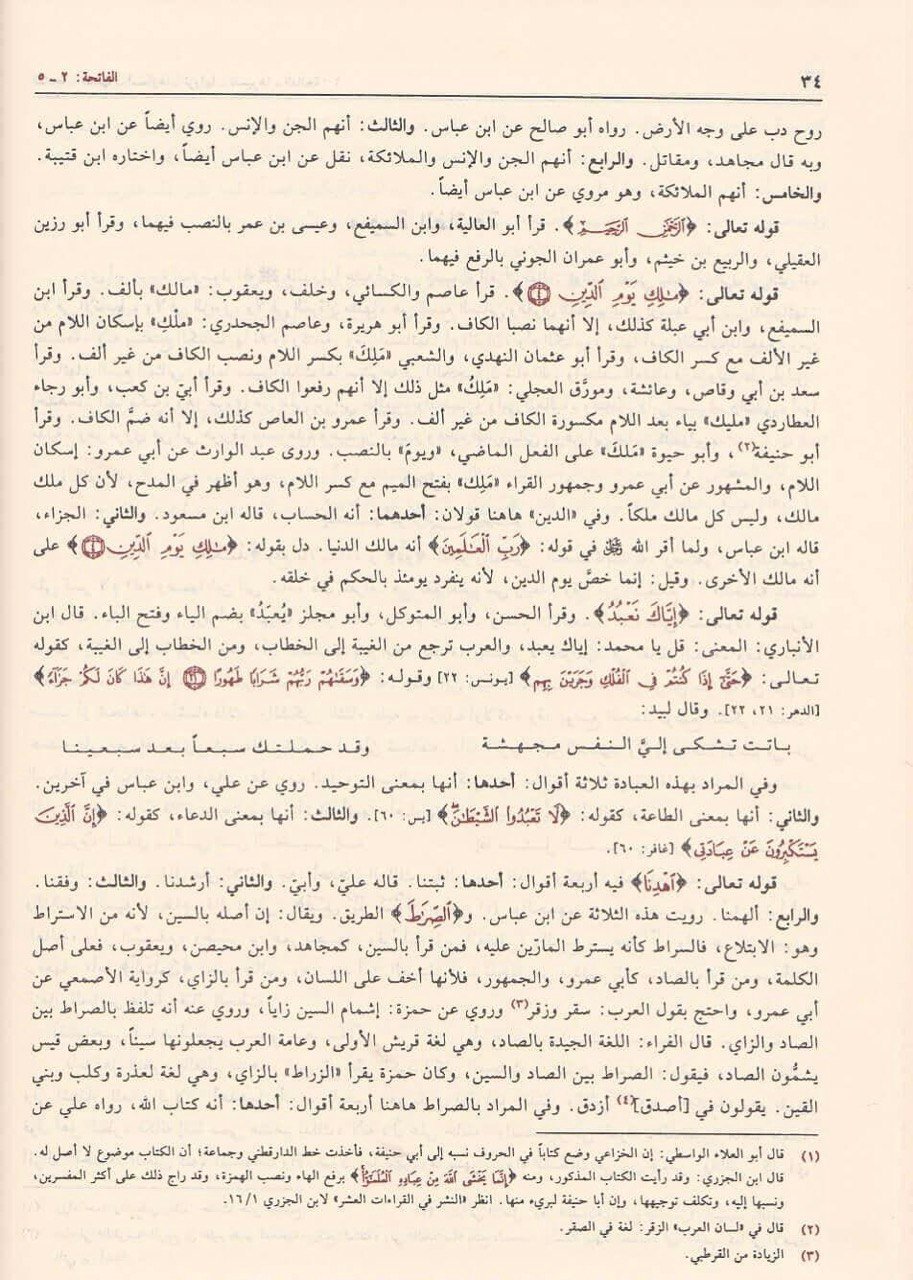 ٣٤
الفاتحة: ٢ ـ ٥
روح دب على وجه الأرض. رواه أبو صالح عن ابن عباس. والثالث: أنهم الجن والإنس. روي أيضاً عن ابن عباس،
وبه قال مجاهد، ومقاتل. والرابع: أنهم الجن والإنس والملائكة، نقل عن ابن عباس أيضاً، واختاره ابن قتيبة.
والخامس: أنهم الملائكة، وهو مروي عن ابن عباس أيضاً.
قوله تعالى: ﴿ٱلرَّحْمَٰنِ ٱلرَّحِيمِ﴾. قرأ أبو العالية، وابن السميفع، وعيسى بن عمر بالنصب فيهما، وقرأ أبو رزين
العقيلي، والربيع بن خيثم، وأبو عمران الجوني بالرفع فيهما.
قوله تعالى: ﴿مَٰلِكِ يَوْمِ ٱلدِّينِ ٤﴾. قرأ عاصم والكسائي، وخلف، ويعقوب: «مالك» بألف. وقرأ ابن
السميفع، وابن أبي عبلة كذلك، إلا أنهما نصبا الكاف. وقرأ أبو هريرة، وعاصم الجحدري: «ملْكِ» بإسكان اللام من
غير الألف مع كسر الكاف، وقرأ أبو عثمان النهدي، والشعبي «مَلِكَ» بكسر اللام ونصب الكاف من غير ألف. وقرأ
سعد بن أبي وقاص، وعائشة، ومورَّق العجلي: «مَلِكُ» مثل ذلك إلا أنهم رفعوا الكاف. وقرأ أبيّ بن كعب، وأبو رجاء
العطاردي «مليك» بياء بعد اللام مكسورة الكاف من غير ألف. وقرأ عمرو بن العاص كذلك، إلا أنه ضمَّ الكاف. وقرأ
أبو حنيفة(٢)، وأبو حيوة «مَلَكَ» على الفعل الماضي، «ويومَ» بالنصب. وروى عبد الوارث عن أبي عمرو: إسكان
اللام، والمشهور عن أبي عمرو وجمهور القراء «مَلِك» بفتح الميم مع كسر اللام، وهو أظهر في المدح، لأن كل ملك
مالك، وليس كل مالك ملكاً. وفي «الدين» هاهنا قولان: أحدهما: أنه الحساب، قاله ابن مسعود. والثاني: الجزاء،
قاله ابن عباس، ولما أقر الله ﷻ في قوله: ﴿رَبِّ ٱلْعَٰلَمِينَ﴾ أنه مالك الدنيا. دل بقوله: ﴿مَٰلِكِ يَوْمِ ٱلدِّينِ ٤﴾ على
أنه مالك الأخرى. وقيل: إنما خصَّ يوم الدين، لأنه ينفرد يومئذ بالحكم في خلقه.
قوله تعالى: ﴿إِيَّاكَ نَعْبُدُ﴾. وقرأ الحسن، وأبو المتوكل، وأبو مجلز «يُعبَدُ» بضم الياء وفتح الباء. قال ابن
الأنباري: المعنى: قل يا محمد: إياك يعبد، والعرب ترجع من الغيبة إلى الخطاب، ومن الخطاب إلى الغيبة، كقوله
تعالى: ﴿حَتَّىٰٓ إِذَا كُنتُمْ فِى ٱلْفُلْكِ وَجَرَيْنَ بِهِم﴾ [يونس: ٢٢] وقوله: ﴿وَسَقَىٰهُمْ رَبُّهُمْ شَرَابًا طَهُورًا ٢١ إِنَّ هَٰذَا كَانَ لَكُمْ جَزَآءً﴾
[الدهر: ٢١، ٢٢]. وقال لبيد:
باتت تشكى إليَّ النفس مجهشة وقد حملتك سبعاً بعد سبعينا
وفي المراد بهذه العبادة ثلاثة أقوال: أحدها: أنها بمعنى التوحيد. روي عن علي، وابن عباس في آخرين.
والثاني: أنها بمعنى الطاعة، كقوله: ﴿لَا تَعْبُدُوا۟ ٱلشَّيْطَٰنَ﴾ [يس: ٦٠]. والثالث: أنها بمعنى الدعاء، كقوله: ﴿إِنَّ ٱلَّذِينَ
يَسْتَكْبِرُونَ عَنْ عِبَادَتِى﴾ [غافر: ٦٠].
قوله تعالى: ﴿ٱهْدِنَا﴾ فيه أربعة أقوال: أحدها: ثبتنا. قاله عليّ، وأبيّ. والثاني: أرشدنا. والثالث: وفقنا.
والرابع: ألهمنا. رويت هذه الثلاثة عن ابن عباس. و﴿ٱلصِّرَٰطَ﴾ الطريق. ويقال: إن أصله بالسين، لأنه من الاستراط
وهو: الابتلاع، فالسراط كأنه يسترط المارّين عليه، فمن قرأ بالسين، كمجاهد، وابن محيصن، ويعقوب، فعلى أصل
الكلمة، ومن قرأ بالصاد، كأبي عمرو، والجمهور، فلأنها أخف على اللسان، ومن قرأ بالزاي، كرواية الأصمعي عن
أبي عمرو، واحتج بقول العرب: سقر وزقر(٣) وروي عن حمزة: إشمام السين زاياً، وروي عنه أنه تلفظ بالصراط بين
الصاد والزاي. قال الفراء: اللغة الجيدة بالصاد، وهي لغة قريش الأولى، وعامة العرب يجعلونها سيناً، وبعض قيس
يشمُّون الصاد، فيقول: الصراط بين الصاد والسين، وكان حمزة يقرأ «الزراط» بالزاي، وهي لغة لعذرة وكلب وبني
القين. يقولون في [أصدق](٤) أزدق. وفي المراد بالصراط هاهنا أربعة أقوال: أحدها: أنه كتاب الله، رواه علي عن
(١) قال أبو العلاء الواسطي: إن الخزاعي وضع كتاباً في الحروف نسبه إلى أبي حنيفة، فأخذت خط الدارقطني وجماعة؛ أن الكتاب موضوع لا أصل له.
قال ابن الجزري: وقد رأيت الكتاب المذكور، ومنه ﴿إِنَّمَا يَخْشَى ٱللَّهَ مِنْ عِبَادِهِ ٱلْعُلَمَٰٓؤُا۟﴾ برفع الهاء ونصب الهمزة، وقد راج ذلك على أكثر المفسرين،
ونسبها إليه، وتكلف توجيهها، وإن أبا حنيفة لبريء منها. انظر «النشر في القراءات العشر» لابن الجزري ١٦/١.
(٢) قال في «لسان العرب» الزقر: لغة في الصقر.
(٣) الزيادة من القرطبي.